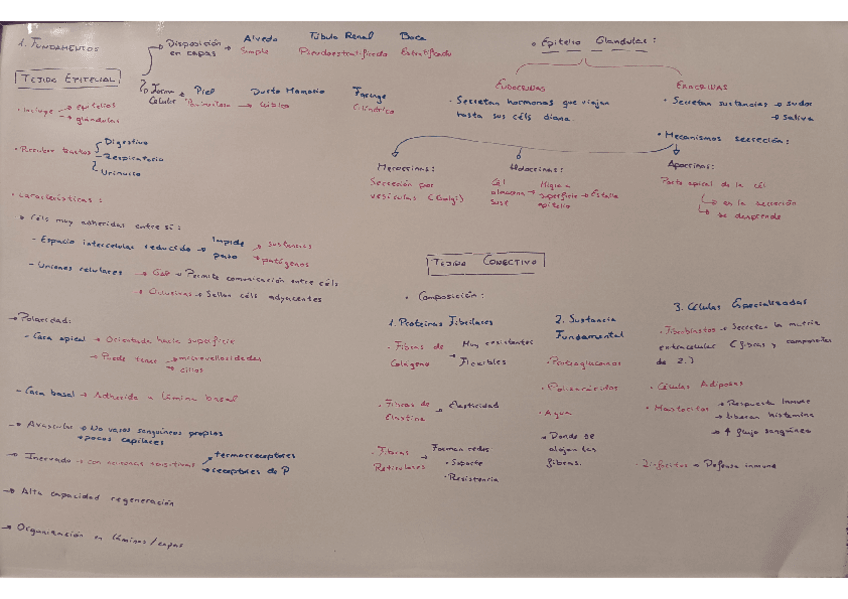 1. FUNDAMENTOS
TEJIDO EPITELIAL
· Incluye → epitelios
→ glándulas
· Recubre tractos
Digestivo
Respiratorio
Urinario
Disposición en capas →
Alveolo
Simple
Túbulo Renal
Pseudoestratificado
Boca
Estratificado
Forma Celular
Piel
Ducto Mamario
→ Cúbico
Faringe
Cilíndrico
· Características:
→ Céls muy adheridas entre sí:
- Espacio intercelular reducido → Impide paso → sustancias
→ patógenos
- Uniones celulares → GAP → Permite comunicación entre céls
→ Oclusivas → Sellan céls adyacentes
→ Polaridad:
- Cara apical → Orientada hacia superficie
→ Puede tener → microvellosidades
→ cilios
- Cara basal → Adherida a lámina basal
→ Avascular → No vasos sanguíneos propios
→ pocos capilares
→ Inervado → con neuronas sensitivas → termorreceptores
→ receptores de P
→ Alta capacidad regeneración
→ Organización en láminas/capas
· Epitelio Glandular:
ENDOCRINAS
· Secretan hormonas que viajan
hasta sus céls diana.
EXOCRINAS
· Secretan sustancias → sudor
→ saliva
· Mecanismos secreción:
Merocrinas:
Secreción por
vesículas (Golgi)
Holocrinas:
Cél
almacena
sust
→ Migra a
superficie
epitelio
→ Estalla
Apocrinas:
Parte apical de la cél
→ en la secreción
→ se desprende
TEJIDO CONECTIVO
· Composición:
1. Proteínas Fibrilares
· Fibras de
Colágeno
→ Muy resistentes
Flexibles
· Fibras de
Elastina
→ Elasticidad
· Fibras
Reticulares
→ Forman redes
· Soporte
· Resistencia
2. Sustancia
Fundamental
· Proteoglucanos
· Polisacáridos
· Agua
→ Donde se
alojan las
fibras.
3. Células Especializadas
· Fibroblastos → Secretan la matriz
extracelular (fibras y componentes
de 2.)
· Células Adiposas
· Mastocitos → Respuesta Inmune
→ liberan histamina
→ ↑ flujo sanguíneo
→ Defensa inmune